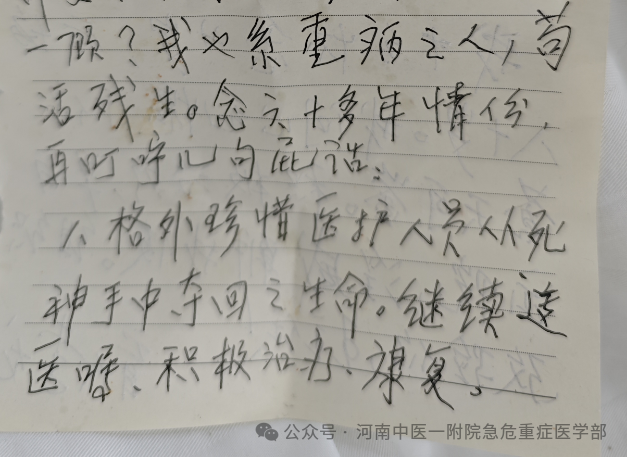 一顾？我也系重病之人，苟
活残生。念六十多年情份，
再叮咛几句屁话：
1、格外珍惜医护人员从死
神手中夺回之生命。继续遵
医嘱、积极治疗、康复。
公众号·河南中医一附院急危重症医学部